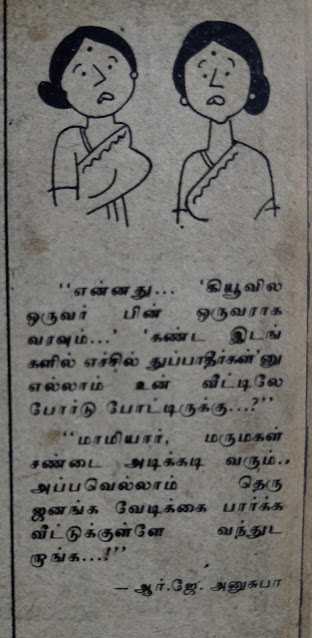 “என்னது... ‘கியூவில
ஒருவர் பின் ஒருவராக
வரவும்...’ ‘கண்ட இடங்
களில் எச்சில் துப்பாதீர்கள்’னு
எல்லாம் உன் வீட்டிலே
போர்டு போட்டிருக்கு...?”
“மாமியார், மருமகள்
சண்டை அடிக்கடி வரும்..
அப்பவெல்லாம் தெரு
ஜனங்க வேடிக்கை பார்க்க
வீட்டுக்குள்ளே வந்துட
றாங்க...!”
— ஆர்.ஜே. அனுசுபா